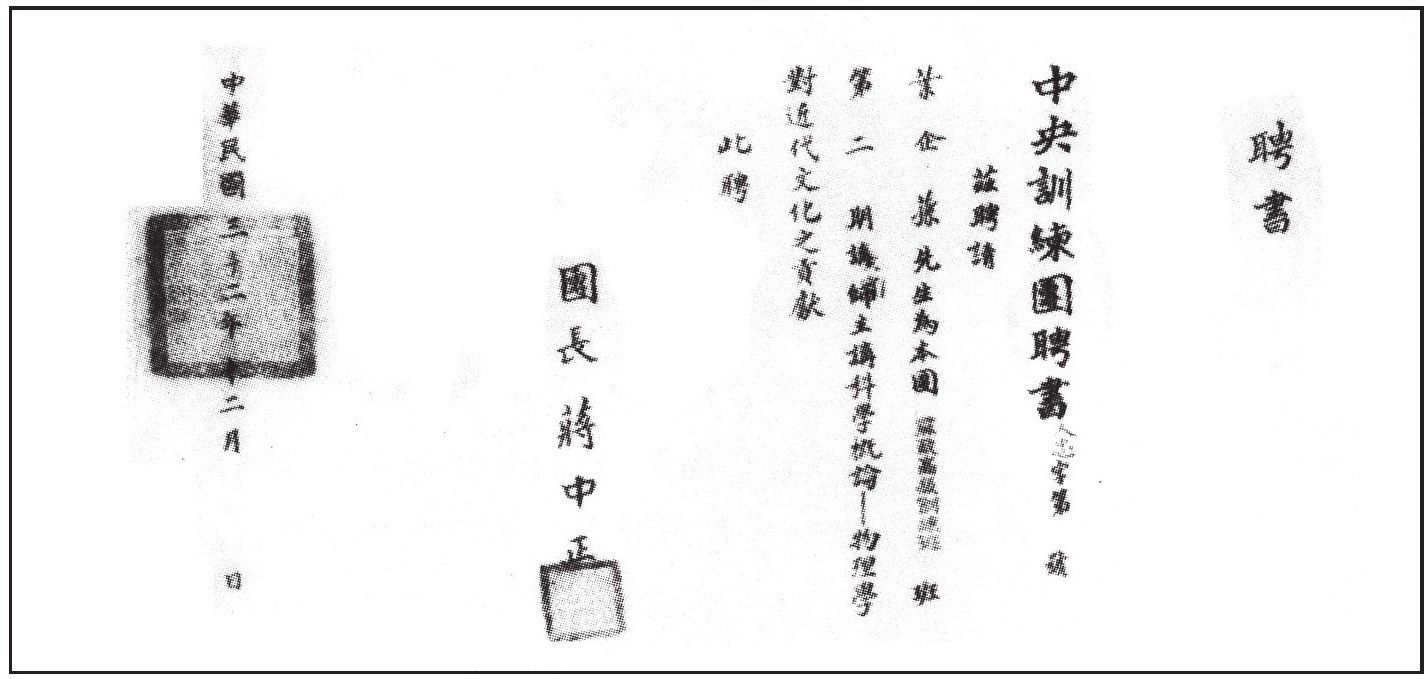 聘書
中央訓練團聘書 字第 號
茲聘請
葉企蓀先生為本團 班
第二期講師主講科學概論—物理學
對近代文化之貢獻
此聘
團長 蔣中正
中華民國三十二年十二月 日